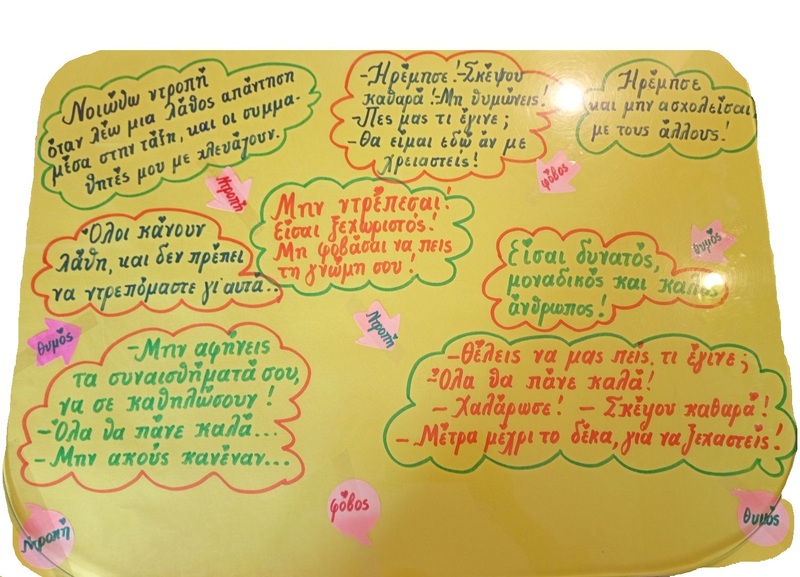 Νοιώθω ντροπή
όταν λέω μια λάθος απάντηση
μέσα στην τάξη, και οι συμμα-
θητές μου με χλευάζουν.
-Ηρέμησε!-Σκέψου
καθαρά!-Μη θυμώνεις!
-Πες μας τι έγινε;
-Θα είμαι εδώ αν με
χρειαστείς!
Ηρέμησε
και μην ασχολείσαι
με τους άλλους!
Ντροπή
φόβος
Όλοι κάνουν
λάθη, και δεν πρέπει
να ντρεπόμαστε γι'αυτά...
Μην ντρέπεσαι!
Είσαι ξεχωριστός!
Μη φοβάσαι να πεις
τη γνώμη σου!
θυμός
Είσαι δυνατός,
μοναδικός και καλός
άνθρωπος!
θυμός
Ντροπή
-Μην αφήνεις
τα συναισθήματά σου,
να σε καθηλώσουν!
-Όλα θα πάνε καλά...
-Μην ακούς κανέναν...
-Θέλεις να μας πείς, τι έγινε;
-Όλα θα πάνε καλά!
- Χαλάρωσε! - Σκέψου καθαρά!
- Μέτρα μέχρι το δέκα, για να ξεχαστείς!
Ντροπή
φόβος
θυμός